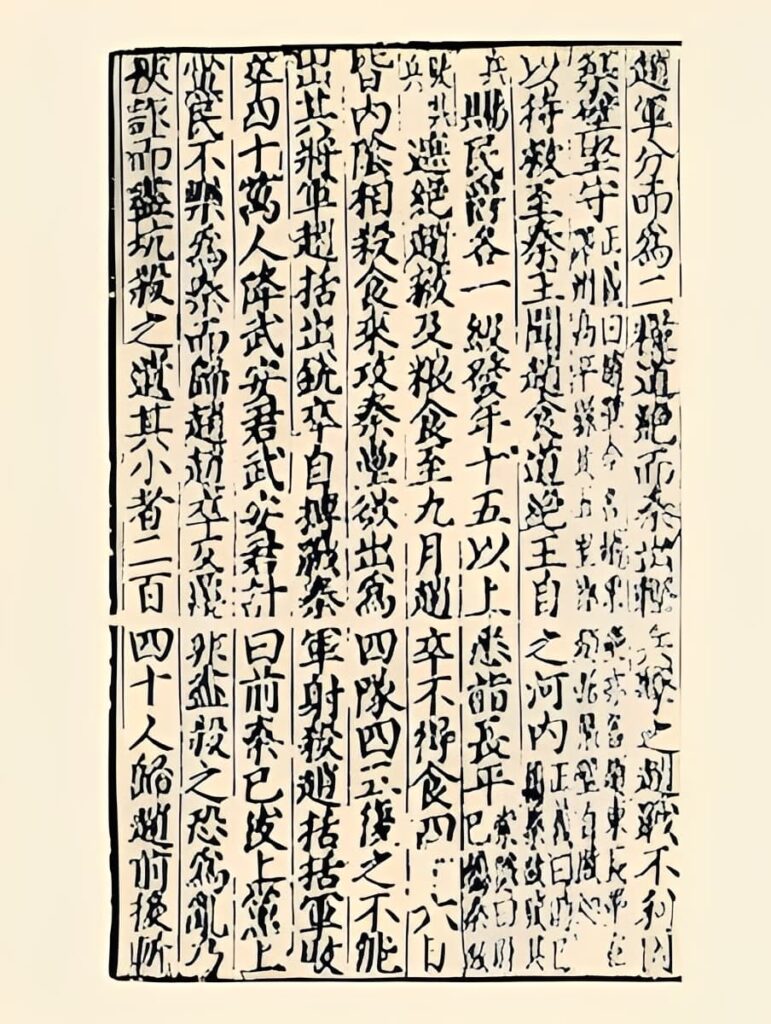 趙軍分而爲二糧道絶而秦出輕兵擊之趙戰不利因
築壁堅守正義曰
以待救至秦王聞趙食道絶王自之河内正義曰時已屬秦故發其
兵賜民爵各一級發年十五以上悉詣長平索隱曰時已屬秦故
發其兵遮絶趙救及粮食至九月趙卒不得食四六日
皆内陰相殺食來攻秦壘欲出爲四隊四五復之不能
出其將軍趙括出銳卒自搏戰秦軍射殺趙括括軍敗
卒四十萬人降武安君武安君計曰前秦已拔上黨上
黨民不樂爲秦而歸趙趙卒反覆非盡殺之恐爲亂乃
挾詐而盡坑殺之遺其小者二百四十人歸趙前後斬